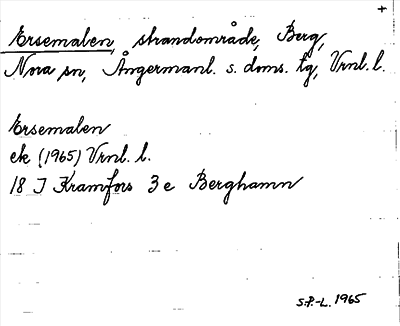 +
Ersemalen, strandområde, Berg,
Nora sn, Ångermanl. s. doms. tg, Vrnl. l.
Ersemalen
ek (1965) Vrnl. l.
18 I Kramfors 3 e Berghamn
S.P.-L. 1965